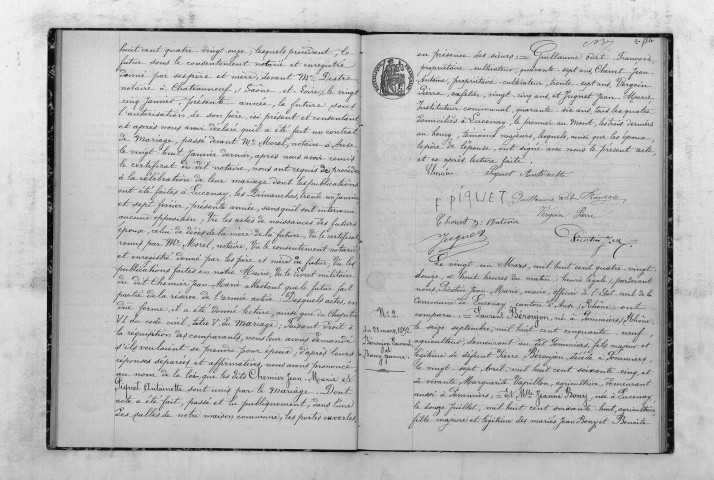 huit cent quatre vingt onze, lesquels procédant, le
futur sous le consentement notarié et enregistré
donné par ses père et mère, devant Me Destre
notaire à Chateauneuf, Saône et Loire, le vingt
cinq janvier, présente année, la future sous
l'autorisation de son père, ici présent et consentant
et après nous avoir déclaré qu'il a été fait un contrat
de Mariage, passé devant Me Morel, notaire à Anse
le vingt huit Janvier dernier, après nous avoir remis
le certificat du dit notaire, nous ont requis de procéder
à la célébration de leur mariage dont les publications
ont été faites à Lucenay, les Dimanches, trente un janvier
et sept février, présente année, sans qu'il soit intervenu
aucune opposition; Vu les actes de naissances des futurs
époux, celui de décès de la mère de la future, du certificat
remis par Me Morel, notaire, du consentement notarié
et enregistré donné par les père et mère du futur, vu les
publications faites en notre Mairie, vu le livret militaire
du dit Chemier Jean-Marie attestant que le futur fait
partie de la réserve de l'armée active. Desquels actes, en
due forme, il a été donné lecture, ainsi que du Chapitre
VI du code civil, titre V du Mariage; faisant droit à
la réquisition des comparants, nous leur avons demandé
s'ils voulaient se prendre pour époux; d'après leurs
réponses séparées et affirmatives, nous avons prononcé
au nom de la loi que les dits Chemier Jean-Marie et
Piguet Antoinette sont unis par le mariage. Dont
acte a été fait, passé et lu publiquement, dans l'une
des salles de notre maison commune, les portes ouvertes,
en présence des sieurs: = Guillaume dit François,
propriétaire-cultivateur, quarante-sept ans, Thevet Jean
Antoine, propriétaire cultivateur, trente sept ans, Vergoin
Pierre, sapeur, vingt-cinq ans et Juguet Jean-Marie,
Instituteur communal, quarante-six ans, tous les quatre
domiciliés à Lucenay, le premier au mont, les trois derniers
au bourg, témoins majeurs, lesquels, ainsi que les époux,
le père de l'épouse, ont signé avec nous le présent acte,
et ce après lecture faite.
Piguet Antoinette
F PIGUET Guillaume dit François
Thevet J. Antoine Vergoin Pierre
Juguet
Le vingt un Mars, mil huit cent quatre-vingt
douze, à huit heures du matin, (heure légale), pardevant
nous, officier de l'Etat-civil de la
Commune de Lucenay, canton d'Anse, (Rhône) ont
comparu: = Laurent Béroujon, né à Pommiers, (Rhône),
le seize septembre, mil huit cent cinquante-neuf,
agriculteur, demeurant au dit Pommiers fils majeur et
légitime de défunt Pierre Béroujon, décédé à Pommiers,
le vingt-sept Avril, mil huit cent soixante-cinq, et
de vivante Marguerite Papillon, agricultrice, demeurant
aussi à Pommiers. = Et Mlle Jeanne Bony, née à Lucenay,
le douze juillet, mil huit cent soixante-huit, agricultrice
fille majeure et légitime des mariés Jean Bony et Benoîte
No 2.
du 21 mars 1892
Béroujon Laurent
et
Bony Jeanne